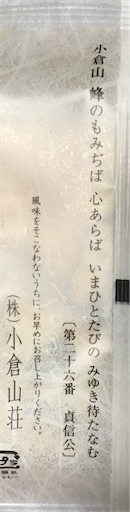 小倉山 峰のもみぢば 心あらば いまひとたびの みゆき待たなむ
〔第二十六番 貞信公〕
風味をそこなわないうちに、お早めにお召し上がりください。
(株)小倉山荘